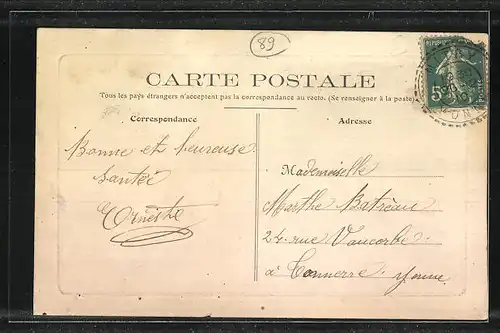 89
CARTE POSTALE
Tous les pays étrangers n'acceptent pas la correspondance au recto. (Se renseigner à la poste)
Correspondance
Bonne et heureuse
Santée
Ernèste
Adresse
Mademoiselle
Marthe Batréau
24 rue Vaucorbe
à Tonnerre. Yonne
5c